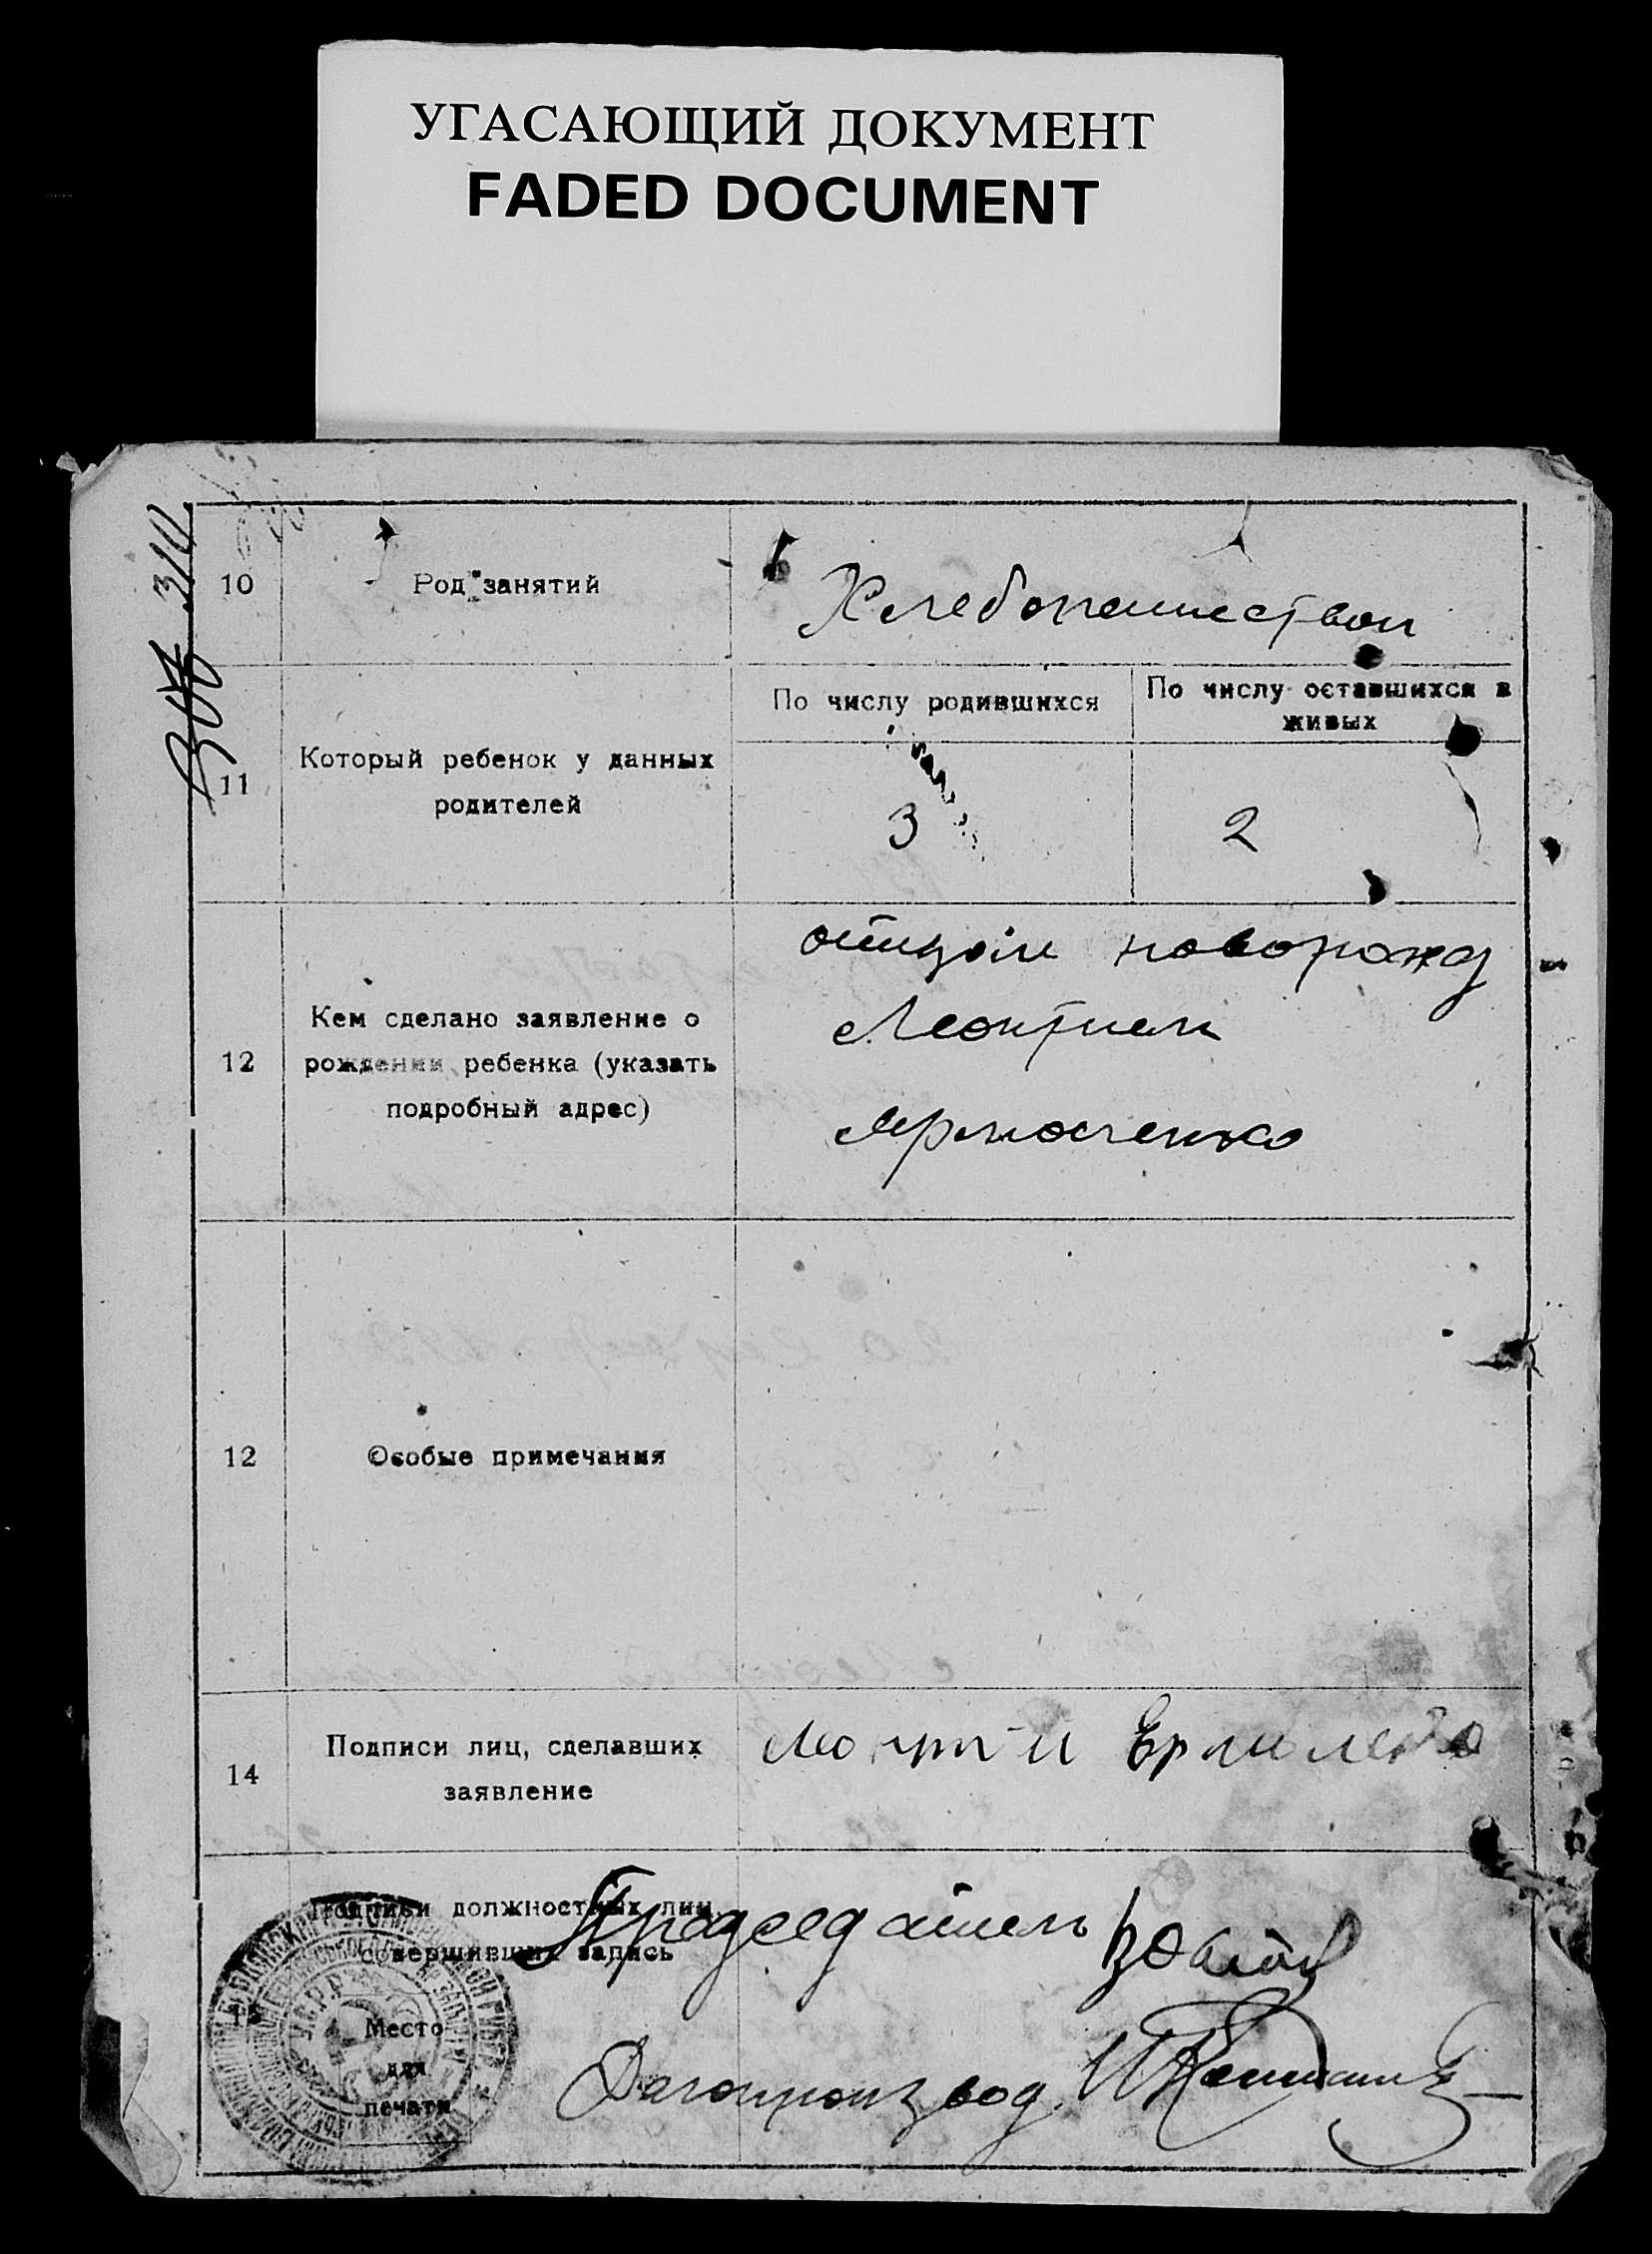 УГАСАЮЩИЙ ДОКУМЕНТ
FADED DOCUMENT
10
Род занятий
Хлебопашеством
11
Который ребенок у данных
родителей
По числу родившихся
По числу оставшихся в
живых
3
2
12
Кем сделано заявление о
рождении ребенка (указать
подробный адрес)
отцом новорожд
Леонтием
12
Особые примечания
14
Подписи лиц, сделавших
заявление
Подписи должностных лиц,
совершивших запись
Председатель
Место
для
печати
Делопроизвод.